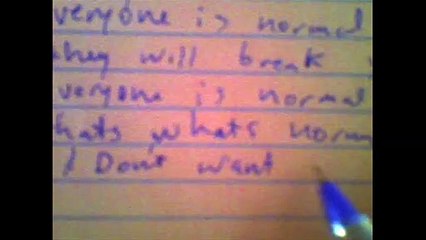 veryone is normal
they will break
veryone is normal
hats whats norm
I Dont want